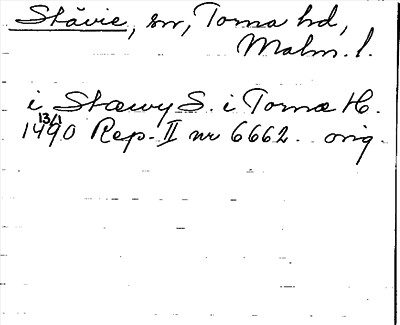 Stävie, sn, Torna hd,
Malm. l.
i Stæwy S. i Tornæ H.
1490 13/1 Rep. II nr 6662. orig.